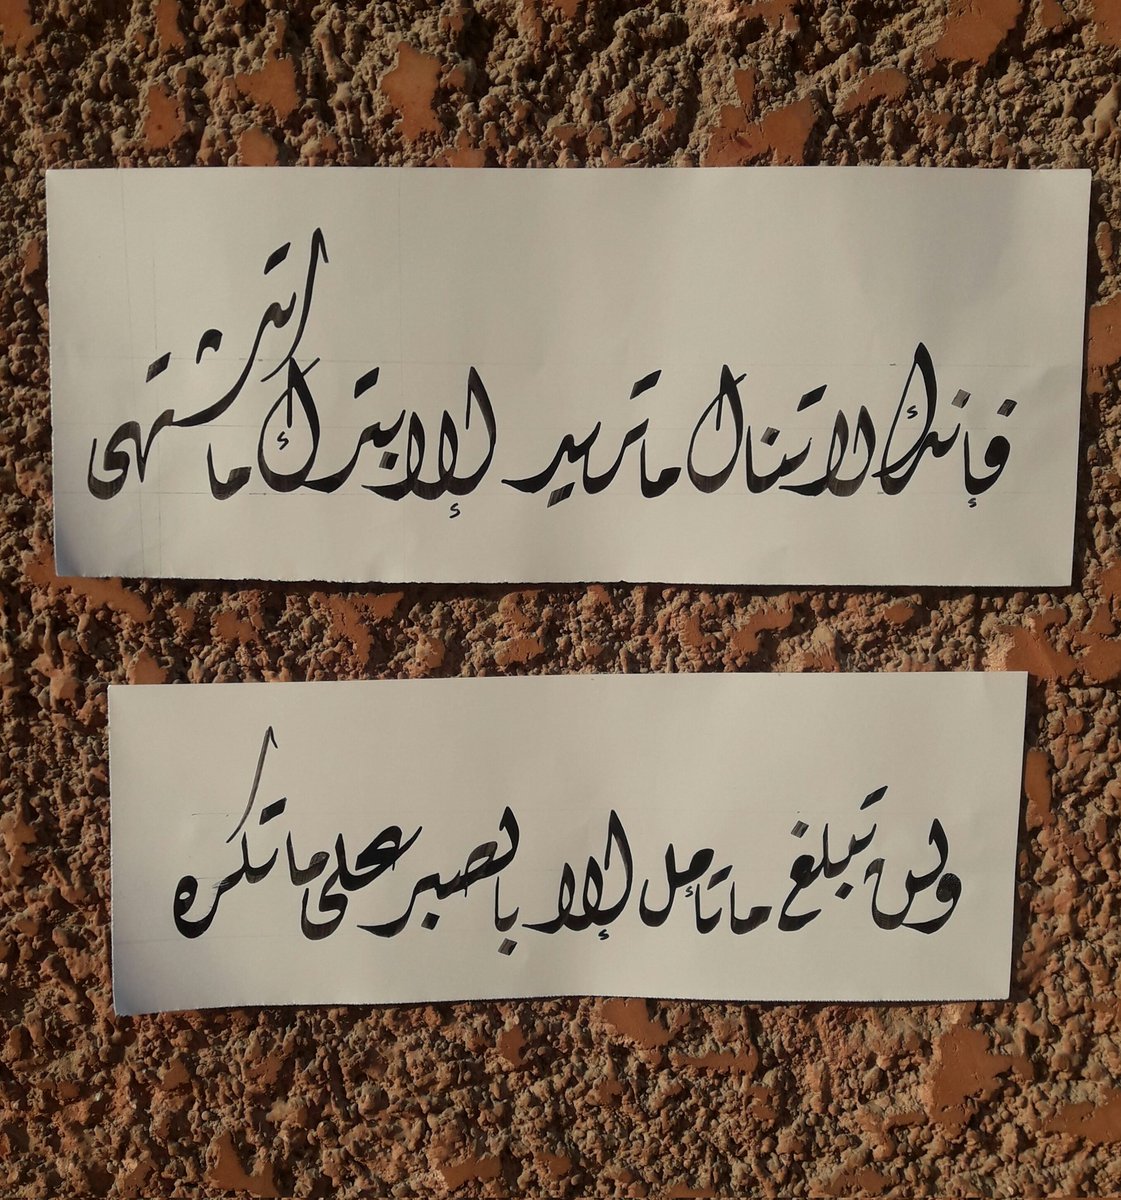 فإنك لا تنال ما تريد إلا بترك ما تشتهى
ولن تبلغ ما تأمل إلا بالصبر على ما تكره